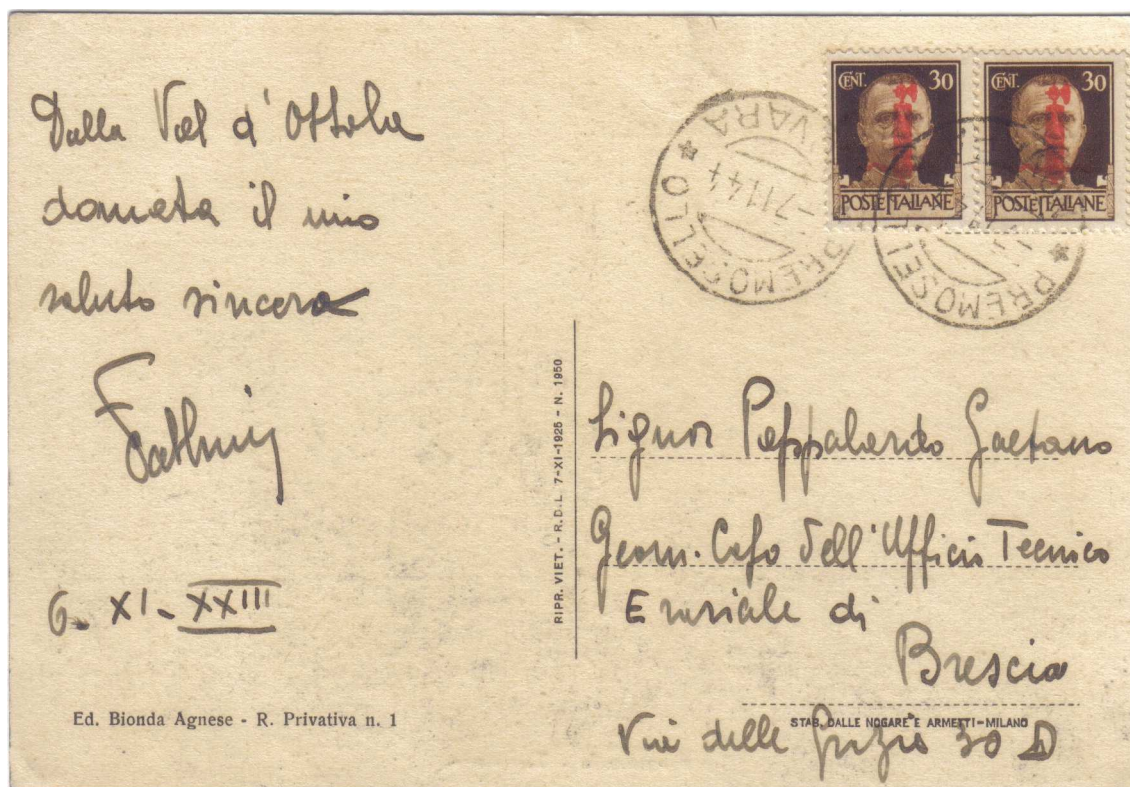 Dalla Val d'Ossola
domata il mio
saluto sincero
6. XI - XXIII
Ed. Bionda Agnese - R. Privativa n. 1
RIPR. VIET. - R.D.L. 7-XI-1925 - N. 1950
CENT. 30
POSTE ITALIANE
CENT. 30
POSTE ITALIANE
PREMOSELLO * VARA *
-7.11.44
PREMOSEL
Signor Pappalardo Gaetano
Geom. Capo dell'Ufficio Tecnico
Erariale di
Brescia
STAB. DALLE NOGARE E ARMETTI - MILANO
Via delle Grazie 30 D